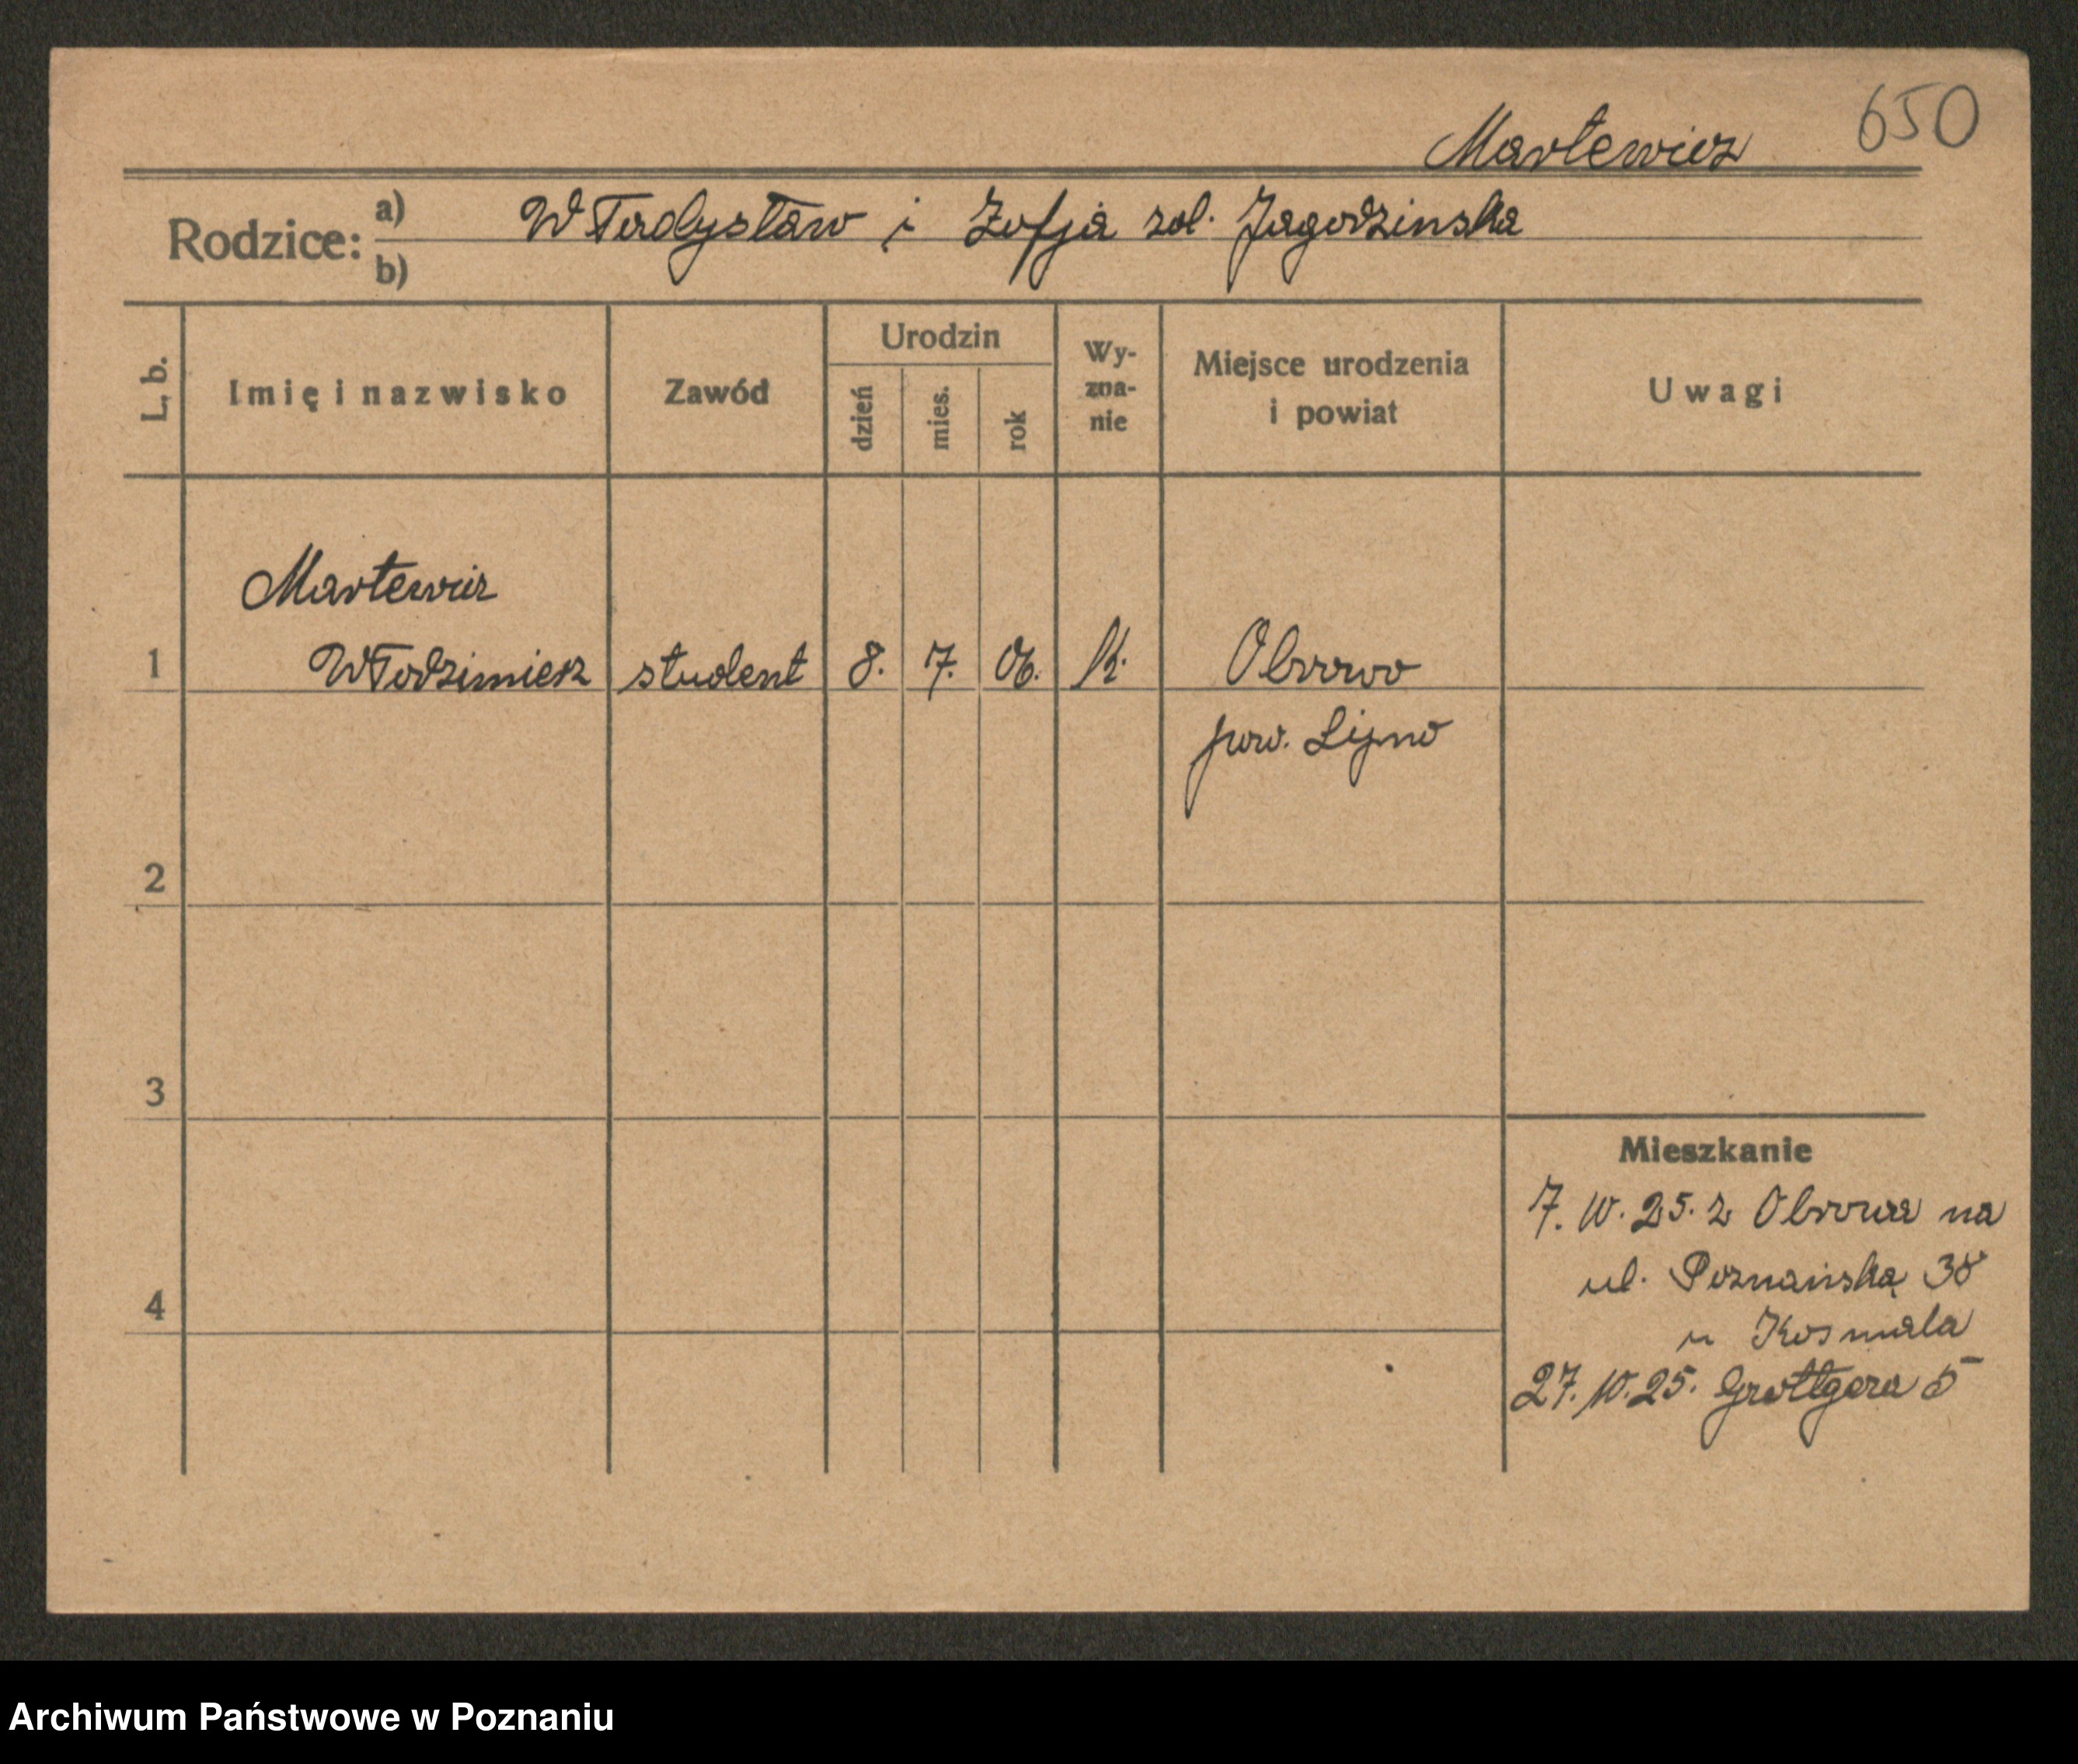 650
Martewicz
Rodzice: a) b) Władysław i Zofja zol. Jagodzinska
L. b.
Imię i nazwisko
Zawód
Urodzin
dzień
mies.
rok
Wy-
zna-
nie
Miejsce urodzenia
i powiat
Uwagi
Martewicz
1 Włodzimierz student 8. 7. 06. k. Obrowo
pow. Lipno
2
3
Mieszkanie
7. 10. 25. z Obrowa na
ul. Poznańską 38
u Kosmala
4
27. 10. 25. Grottgera 5
Archiwum Państwowe w Poznaniu